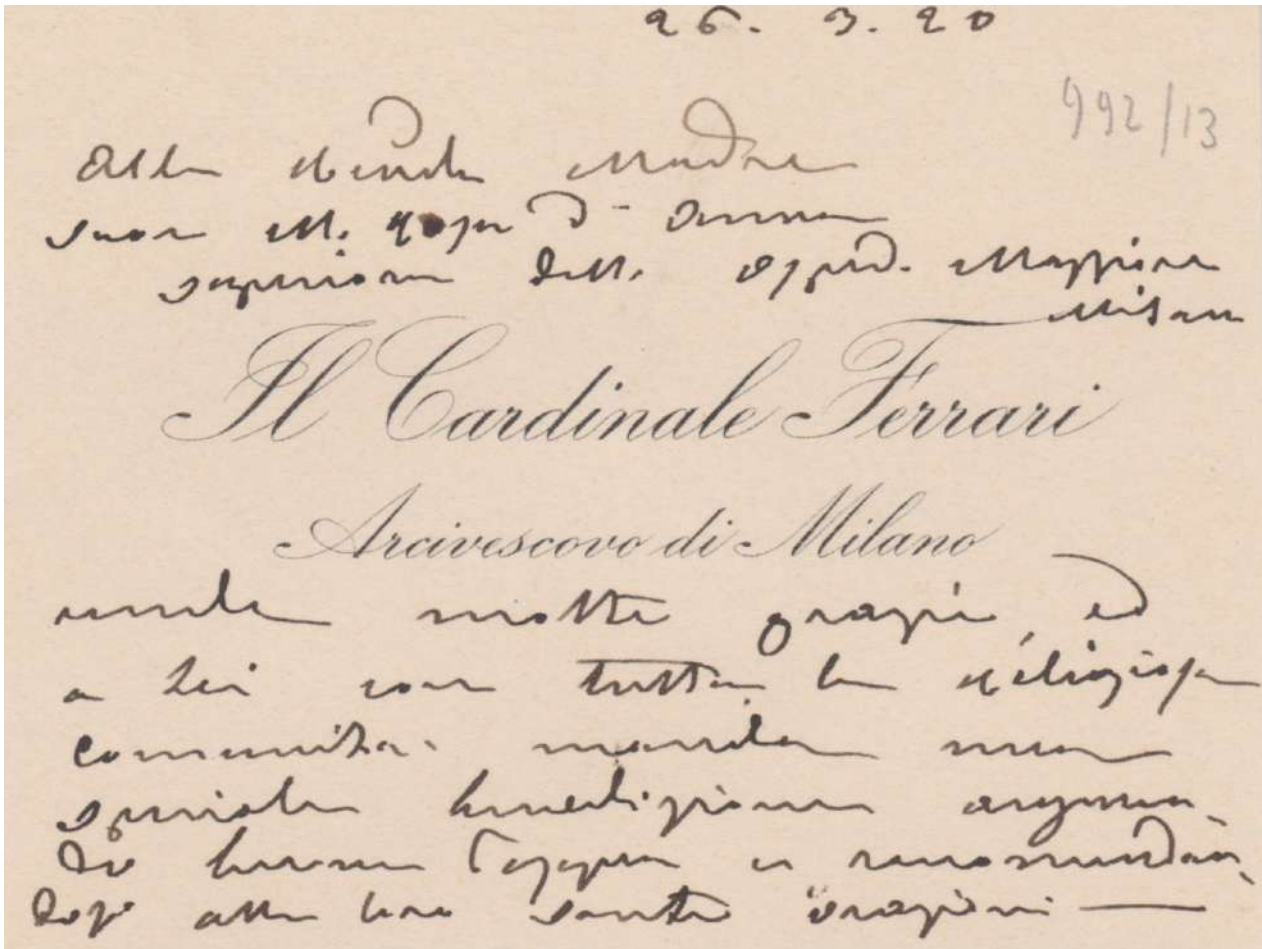 26. 3. 20
992/13
Alla Revda Madre
Suor M. D' Anna
superiora dell. Osped. Maggiore
Milano
Il Cardinale Ferrari
Arcivescovo di Milano
rende molte grazie, ed
a Lei con tutta la Religiosa
comunità manda una
speciale benedizione auguran-
do buona Pasqua e raccomandan-
dosi alle loro sante orazioni —